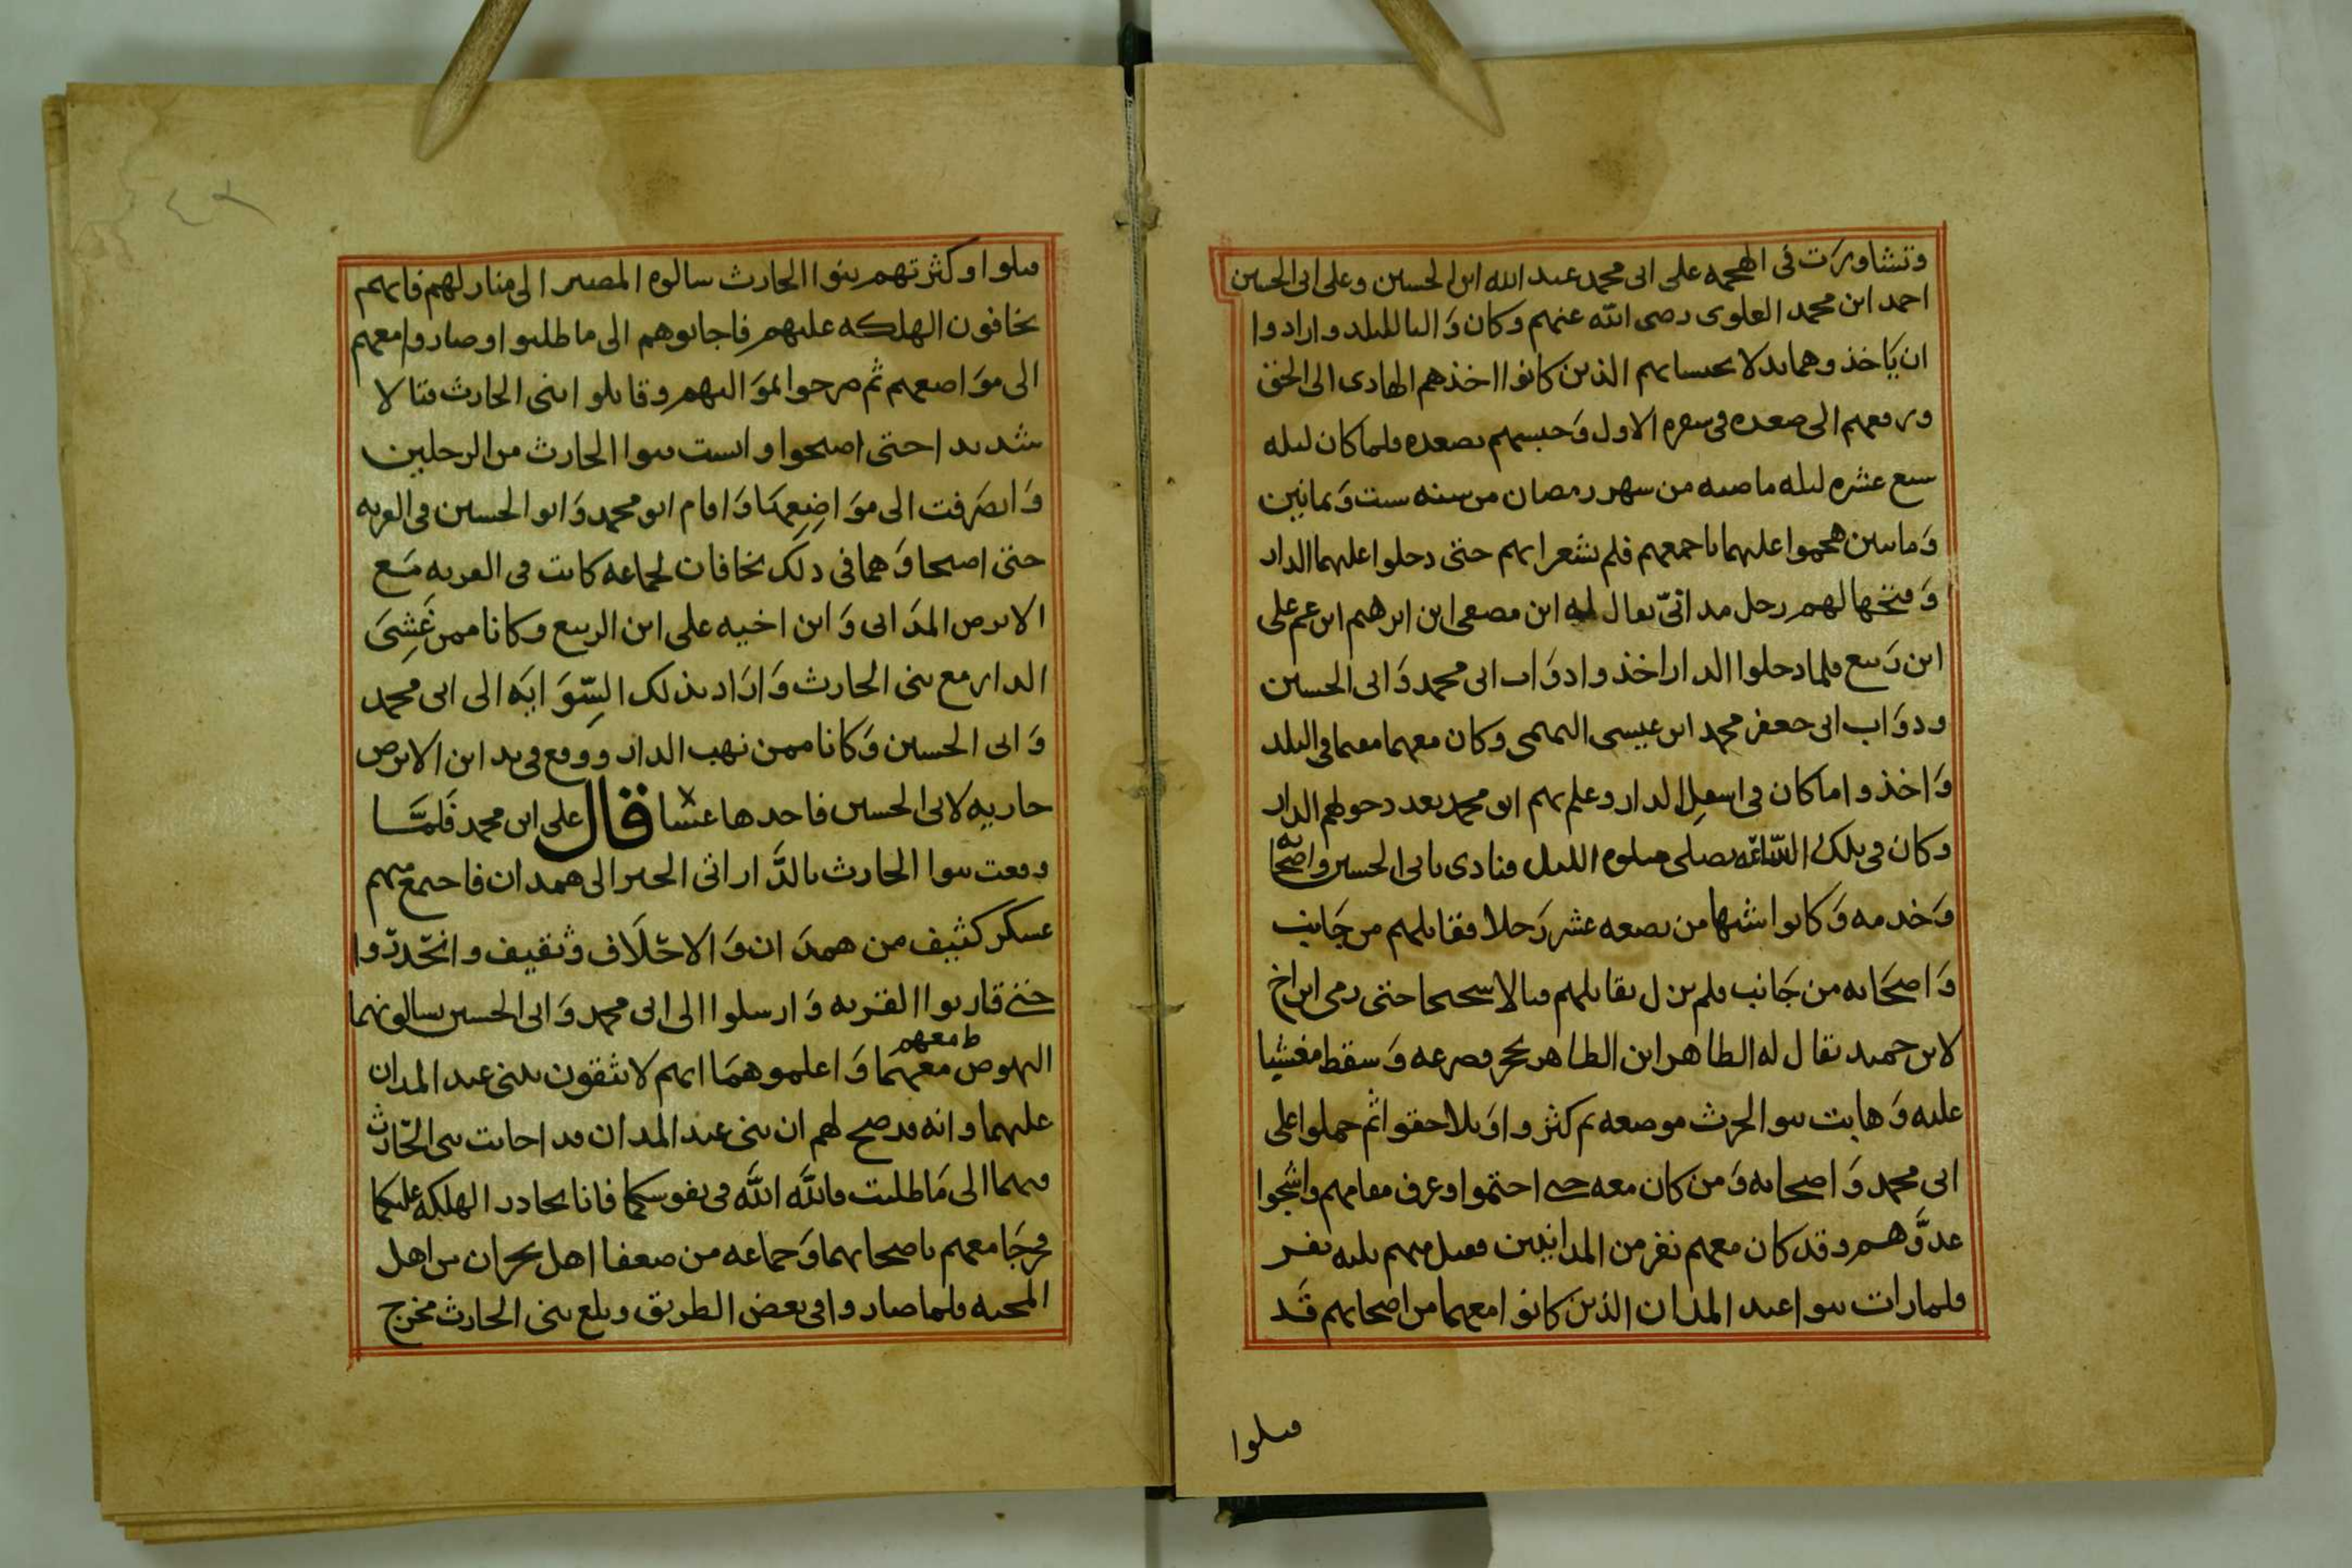 وتشاورت في الهجمه على ابى محمد عبد الله ابن الحسين وعلى ابى الحسين
احمد ابن محمد العلوى رضى الله عنهم وكان وَاليا للبلد وارادوا
ان يَاخذوهما بدلا بحبسايهم الذين كانوا اخذهم الهادى الى الحق
ورفعهم الى صعده فى سفره الاول وَحبسهم بصعده فلما كان ليله
سبع عشره ليله ماضيه من شهر رمضان من سنه ست وَثمانين
وَماتين هجموا عليهما باجمعهم فلم يشعرا بهم حتى دخلوا عليهما الدار
وَفتحها لهم رجل مدانىّ يقال له ابن مصفى ابن ابرهيم ابن عم على
ابن رَبيع فلما دخلوا الدار اخذوا دوَاب ابى محمد وَابى الحسين
ودوَاب ابى جعفر محمد ابن عيسى التميمى وكان معهما مقيما فى البلد
وَاخذوا ما كان فى اسفلِ الدار وعلم بهم ابو محمد بعد دخولهم الدار
وكان فى تلك السّاعَه يصلى صلوه الليل فنادى بابى الحسين واصحابه
وَخدمه وَكانوا شبها من بضعه عشر رَجلا فقاتلهم من جَانب
وَاصحَابه من جَانب فلم يزل يقاتلهم قتالا شحيحا حتى رمى ابن اخ
لابن حميد يقال له الطاهر ابن الطاهر بحجر فصرعه وَسقط مغشيا
عليه وَهابت بنو الحرث موضعه ثم كثروا وَتلاحقوا ثم حملوا على
ابى محمد وَاصحابه وَمن كان معه حتى احتموا وعرف مقامهم واشجوا
عدوَّهم وقد كان معهم نفر من المدانيين فقتل منهم ثلثه نفر
فلما رات بنوا عبد المدان الذين كانوا معهما من اصحابهم قَد
قتلوا
قتلوا وكثرتهم بنوا الحارث سالوه المصير الى منازلهم فانهم
يخافون الهلكه عليهم فاجابوهم الى ما طلبوا وصاروا معهم
الى موَاضعهم ثم صرخوا لموَاليهم وقاتلوا بنى الحارث قتالا
شديدا حتى اصبحوا وايست بنوا الحارث من الرجلين
وَانصَرفت الى موَاضِعِهَا وَاقام ابو محمد وَابو الحسين فى القريه
حتى اصبحا وَهما فى ذلك يخافان لجماعه كانت فى القريه مَع
الابرص المدَانى وَابن اخيه على ابن الربيع وكانا ممن غَشِىَ
الدار مع بنى الحارث وَارَاد بذلك السِّوَايَه الى ابى محمد
وَابى الحسين وَكانا ممن نهب الدار ووقع فى يد ابن الابرص
جاريه لابى الحسين فاخذها عشا قال على ابن محمد فَلمَّا
وقعت بنوا الحارث بالدَّار اتى الخبر الى همدان فاجتمع منهم
عسكر كثيف من همدَان وَالاحْلَاف وَثقيف وانحَدرّوا
حتى قاربوا القريه وَارسلوا الى ابى محمد وَابى الحسين يسالونهما
النهوض معهمَا وَاعلموهمَا انهم لا يثقون ببنى عبد المدان
ط معهم
عليهما وانه قد صح لهم ان بنى عبد المدان قد اجابت بنى الحَارث
فيهما الى مَا طلبت فاللَّه اللَّه فى نفوسكما فانا نحاذر الهلكه عليكما
فخرجَا معهم باصحابهما وَجماعه من ضعفا اهل نجران من اهل
المحبه فلما صاروا فى بعض الطريق وبلغ بنى الحارث مخرج